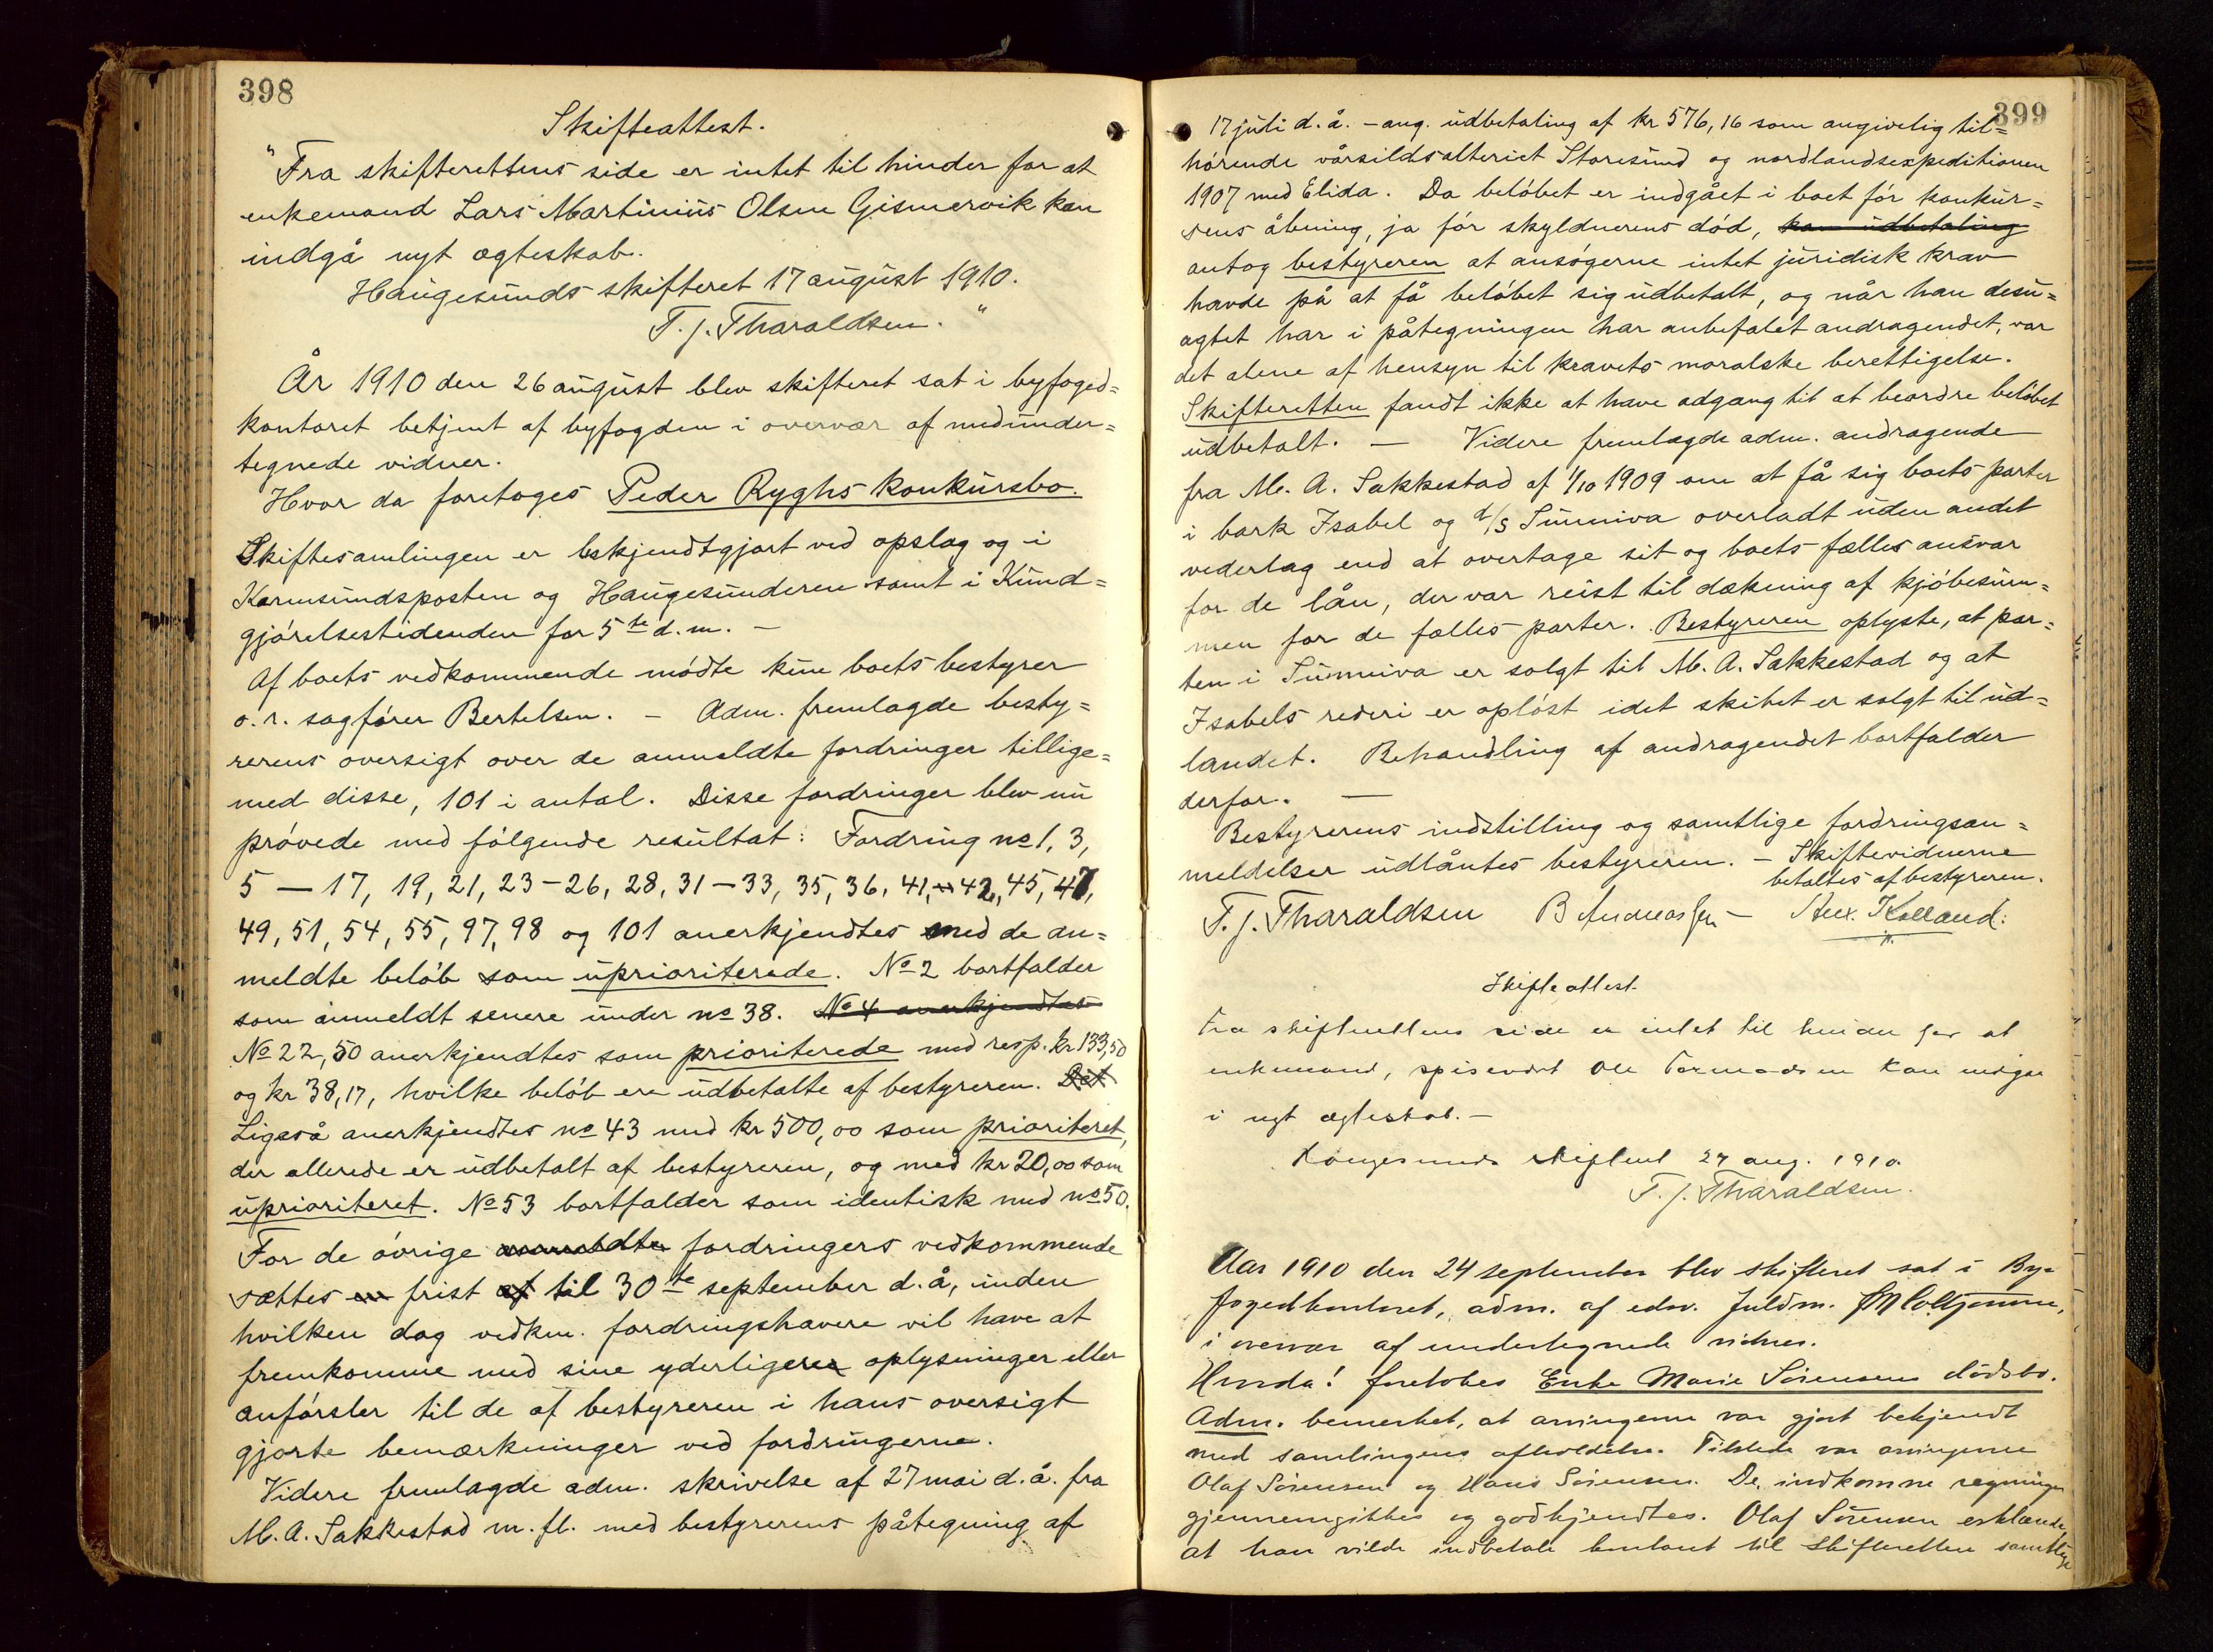 398
Skifteattest.
"Fra skifterettens side er intet til hinder for at
enkemand Lars Martinius Olsen Gismervik kan
indgå nyt ægteskab.
Haugesunds skifteret 17 august 1910.
T. J. Tharaldsen."
År 1910 den 26 august blev skifteret sat i byfoged=
kontoret betjent af byfogden i overvær af medunder=
tegnede vidner.
Hvor da foretoges Peder Ryghs konkursbo.
Skiftesamlingen er bekjendtgjort ved opslag og i
Karmsundsposten og Haugesunderen samt i Kund=
gjørelsestidenden for 5te d.m. -
Af boets vedkommende mødte kun boets bestyrer
o.r. sagfører Bertelsen. - Adm. fremlagde besty=
rerens oversigt over de anmeldte fordringer tillige=
med disse, 101 i antal. Disse fordringer blev nu
prøvede med følgende resultat: Fordring no 1, 3,
5 — 17, 19, 21, 23-26, 28, 31-33, 35, 36, 41, 42, 45, 47,
49, 51, 54, 55, 97, 98 og 101 anerkjendtes med de an=
meldte beløb som uprioriterede. No 2 bortfalder
som anmeldt senere under no 38. No 4 anerkjendtes
No 22, 50 anerkjendtes som prioriterede med resp. kr 133,50
og kr 38,17, hvilke beløb ere udbetalte af bestyreren. Det
Ligeså anerkjendtes no 43 med kr 500,00 som prioriteret,
der allerede er udbetalt af bestyreren, og med kr 20,00 som
uprioriteret. No 53 bortfalder som identisk med no 50.
For de øvrige anmeldte fordringers vedkommende
sættes en frist af til 30te september d.å., inden
hvilken dag vedkm. fordringshavere vil have at
fremkomme med sine yderligere oplysninger eller
anførsler til de af bestyreren i hans oversigt
gjorte bemærkninger ved fordringerne.
Videre fremlagde adm. skrivelse af 27 mai d.å. fra
M. A. Sakkestad m. fl. med bestyrerens påtegning af
399
17 juli d.å. - ang. udbetaling af kr 576,16 som angivelig til=
hørende vårsildsalteriet Storesund og nordlandsexpeditionen
1907 med Elida. Da beløbet er indgået i boet før konkur=
sens åbning, ja før skyldnerens død, kan udbetaling
antog bestyreren at ansøgerne intet juridisk krav
havde på at få beløbet sig udbetalt, og når han desu=
agtet har i påtegningen har anbefalet andragendet, var
det alene af hensyn til kravets moralske berettigelse.
Skifteretten fandt ikke at have adgang til at beordre beløbet
udbetalt. — Videre fremlagde adm. andragende
fra M. A. Sakkestad af 1/10 1909 om at få sig boets parter
i bark Isabel og d/s Sunniva overladt uden andet
vederlag end at overtage sit og boets fælles ansvar
for de lån, der var reist til dækning af kjøbesum=
men for de fælles parter. Bestyreren oplyste, at par=
ten i Sunniva er solgt til M. A. Sakkestad og at
Isabels rederi er opløst idet skibet er solgt til ud=
landet. Behandling af andragendet bortfalder
derfor. —
Bestyrerens indstilling og samtlige fordringsan=
meldelser udlåntes bestyreren. - Skiftevidnerne
betaltes af bestyreren.
T. J. Tharaldsen B Andreassen - Kolland.
Skifteattest.
Fra skifterettens side er intet til hinder for at
enkemand, spisevært Ole Tormodsen kan indgaa
i nyt ægteskab. -
Haugesunds skifteret 27 aug. 1910.
T. J. Tharaldsen.
Aar 1910 den 24 september blev skifteret sat i By=
fogedkontoret, adm. af edsv. fuldm.
i overvær af undertegnede vidner.
Hvorda! foretoges Enke Marie Sørensens dødsbo.
Adm. bemerket, at arvingerne var gjort bekjendt
med samlingens afholdelse. Tilstede var arvingerne
Olaf Sørensen og Hans Sørensen. De indkomne regninger
gjennemgikkes og godkjendtes. Olaf Sørensen erklærede,
at han vilde indbetale kontant til skifteretten samtlige